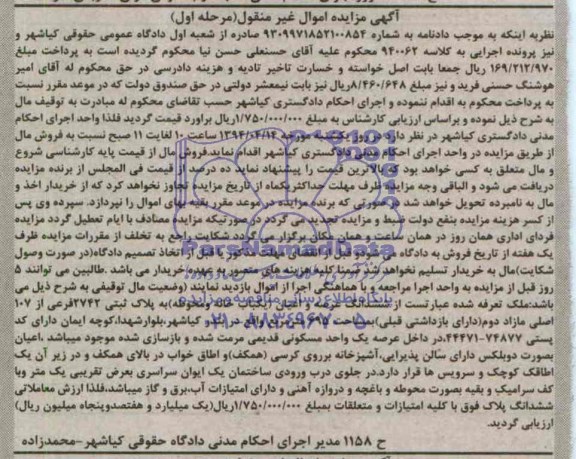 آگهی مزایده اموال غیر منقول(مرحله اول)
نظریه اینکه به موجب دادنامه به شماره ۹۳۰۹۹۷۱۸۵۲۱۰۰۸۵۴ صادره از شعبه اول دادگاه عمومی حقوقی کیاشهر و
نیز پرونده اجرایی به کلاسه ۹۴۰۰۶۲ محکوم علیه آقای حسنعلی حسن نیا محکوم گردیده است به پرداخت مبلغ
۱۶۹/۲۱۲/۹۷۰ ریال جمعا بابت اصل خواسته و خسارت تاخیر تادیه و هزینه دادرسی در حق محکوم له آقای امیر
هوشنگ حسنی فرید و نیز مبلغ ۸/۴۶۰/۶۴۸ریال نیز بابت نیمعشر دولتی در حق صندوق دولت که در موعد مقرر نسبت
به پرداخت محکوم به اقدام ننموده و اجرای احکام دادگستری کیاشهر حسب تقاضای محکوم له مبادرت به توقیف مال
به شرح ذیل نموده و براساس ارزیابی کارشناس به مبلغ ۱/۷۵۰/۰۰۰/۰۰۰ریال براورد قیمت گردید فلذا واحد اجرای احکام
مدنی دادگستری کیاشهر در نظر دارد در روز یکشنبه مورخه ۱۳۹۴/۰۴/۱۴ ساعت ۱۰ لغایت ۱۱ صبح نسبت به فروش مال
از طریق مزایده در واحد اجرای احکام مدنی دادگستری کیاشهر اقدام نماید.فروش مال از قیمت پایه کارشناسی شروع
و مال متعلق به کسی خواهد بود که بالاترین قیمت را پیشنهاد نماید ده درصد از قیمت فی المجلس از برنده مزایده
دریافت می شود و الباقی وجه مزایده ظرف مهلت حداکثر یکماه از تاریخ مزایده تجاوز نخواهد کرد که از خریدار اخذ و
مال به نامبرده تحویل خواهد شد در صورتی که برنده مزایده در موعد مقرر بقیه بهای اموال را نپردازد. سپرده وی پس
از کسر هزینه مزایده بنفع دولت ضبط و مزایده تجدید می گردد در صورتیکه مزایده مصادف با ایام تعطیل گردد مزایده
فردای اداری همان روز در همان ساعت و همان مکان برگزار می گردد شکایت راجع به تخلف از مقررات مزایده ظرف
یک هفته از تاریخ فروش به دادگاه می شود و قبل از انقضای مهلت مذکور یا قبل از اتخاذ تصمیم دادگاه(در صورت وصول
شکایت)مال به خریدار تسلیم نخواهد شد ضمنا کلیه هزینه های متصور به عهده خریدار می باشد .طالبین می توانند ۵
روز قبل از مزایده به واحد اجرا مراجعه و با هماهنگی اجرا از اموال بازدید نمایند (وضعیت مال توقیفی به شرح ذیل می
باشد:ملک تعرفه شده عبارتست از ششدانگ عرصه و اعیان ومحوطه)به پلاک ثبتی ۲۷۴۲فرعی از ۱۰۷
اصلی مازاد دوم(دارای بازداشتی قبلی)بمساحت واقع در کیاشهر،بلوارشهدا،کوچه ایمان دارای کد
پستی ۷۴۸۷۷-۴۴۴۷۱،در داخل عرصه یک واحد مسکونی قدیمی مرمت شده و بازسازی شده موجود میباشد ،اعیان
بصورت دوبلکس دارای سالن پذیرایی،آشپزخانه برروی کرسی (همکف)و اطاق خواب در بالای همکف و در زیر آن یک
اطاقک کوچک و سرویس ها قرار دارد.در جلوی درب ورودی ساختمان یک ایوان سراسری بعرض تقریبی یک متر وبا
کف سرامیک و بقیه بصورت محوطه و باغچه و دروازه آهنی و دارای امتیازات آب،برق و گاز میباشد.فلذا ارزش معاملاتی
ششدانگ پلاک فوق با کلیه امتیازات و متعلقات بمبلغ ۱/۷۵۰/۰۰۰/۰۰۰ریال(یک میلیارد و هفتصدوپنجاه میلیون ریال)
ارزیابی گردید.
ح ۱۱۵۸ مدیر اجرای احکام مدنی دادگاه حقوقی کیاشهر-محمدزاده
ParsNamadData
پایگاه اطلاع رسانی مناقصه مزایده
۰۲۱-۸۸۳۴۹۶۷۰-۵